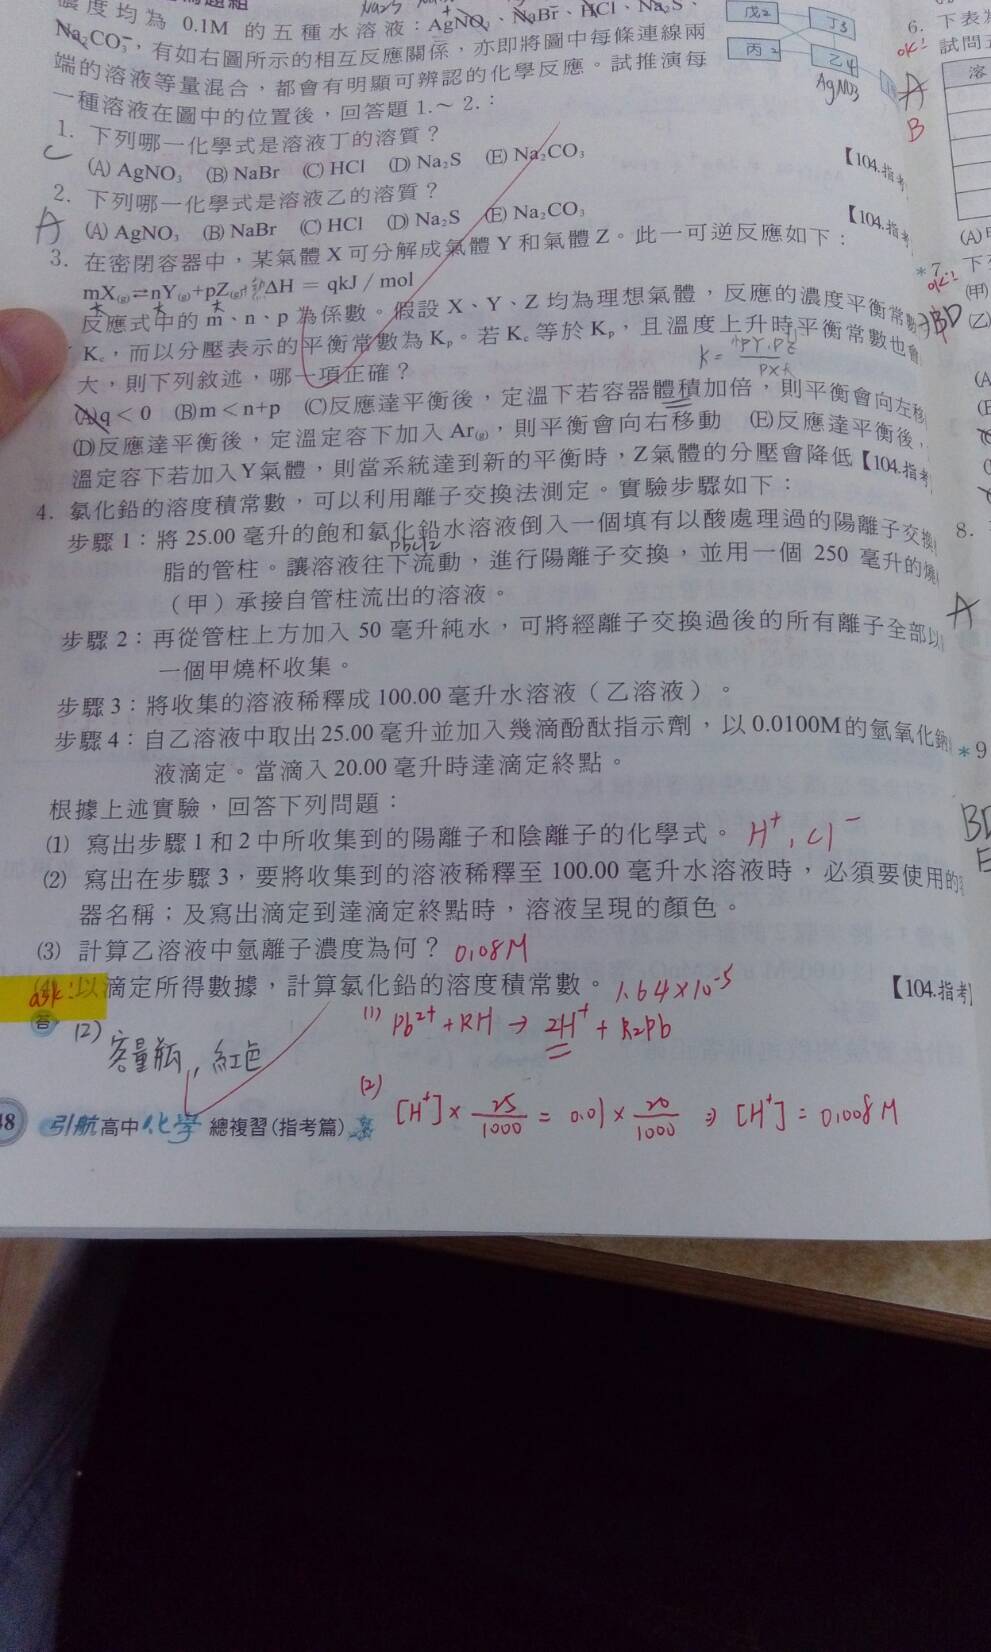 濃度均為 0.1M 的五種水溶液：AgNO₃、NaBr、HCl、Na₂S、
Na₂CO₃，有如右圖所示的相互反應關係，亦即將圖中每條連線兩
端的溶液等量混合，都會有明顯可辨認的化學反應。試推演每
一種溶液在圖中的位置後，回答題 1.～ 2.：
戊2
丁3
丙2
乙4
AgNO3
1. 下列哪一化學式是溶液丁的溶質？
C
(A) AgNO₃ (B) NaBr (C) HCl (D) Na₂S (E) Na₂CO₃
【104.指考
2. 下列哪一化學式是溶液乙的溶質？
A
(A) AgNO₃ (B) NaBr (C) HCl (D) Na₂S (E) Na₂CO₃
【104.指考
3. 在密閉容器中，某氣體 X 可分解成氣體 Y 和氣體 Z。此一可逆反應如下：
mX(g)⇌nY(g)+pZ(g) ΔH = qkJ / mol
反應式中的 m、n、p 為係數。假設 X、Y、Z 均為理想氣體，反應的濃度平衡常數
Kc，而以分壓表示的平衡常數為 Kp。若 Kc 等於 Kp，且溫度上升時平衡常數也會
大，則下列敘述，哪一項正確？
(A)q < 0 (B)m < n+p (C)反應達平衡後，定溫下若容器體積加倍，則平衡會向左移
(D)反應達平衡後，定溫定容下加入 Ar(g)，則平衡會向右移動 (E)反應達平衡後，
溫定容下若加入Y氣體，則當系統達到新的平衡時，Z氣體的分壓會降低【104.指考
4. 氯化鉛的溶度積常數，可以利用離子交換法測定。實驗步驟如下：
步驟 1：將 25.00 毫升的飽和氯化鉛水溶液倒入一個填有以酸處理過的陽離子交換
PbCl2
脂的管柱。讓溶液往下流動，進行陽離子交換，並用一個 250 毫升的燒
（甲）承接自管柱流出的溶液。
步驟 2：再從管柱上方加入 50 毫升純水，可將經離子交換過後的所有離子全部以
一個甲燒杯收集。
步驟 3：將收集的溶液稀釋成 100.00 毫升水溶液（乙溶液）。
步驟 4：自乙溶液中取出 25.00 毫升並加入幾滴酚酞指示劑，以 0.0100M 的氫氧化鈉
液滴定。當滴入 20.00 毫升時達滴定終點。
根據上述實驗，回答下列問題：
(1) 寫出步驟 1 和 2 中所收集到的陽離子和陰離子的化學式。 H⁺, Cl⁻
(2) 寫出在步驟 3，要將收集到的溶液稀釋至 100.00 毫升水溶液時，必須要使用的
器名稱；及寫出滴定到達滴定終點時，溶液呈現的顏色。
(3) 計算乙溶液中氫離子濃度為何？ 0.08M
ask: 以滴定所得數據，計算氯化鉛的溶度積常數。 1.64×10⁻⁵
【104.指考】
答 (2) 容量瓶, 紅色
(1) Pb²⁺ + RH → 2H⁺ + R₂Pb
(2) [H⁺] × 25/1000 = 0.01 × 20/1000 ⇒ [H⁺] = 0.008 M
48 引航高中化學 總複習(指考篇)
6. 下表
ok!
試問
溶
A
B
(A)
*7. 下
ok!
(甲)
BD
(乙)
(A
8.
A
*9
BD
E